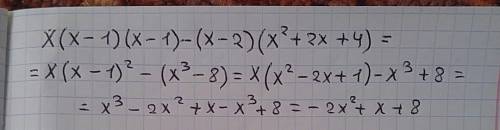 X(x-1)(x-1)-(x-2)(x²+2x+4)=
=X(x-1)²-(x³-8)=X(x²-2x+1)-x³+8=
=x³-2x²+x-x³+8=-2x²+x+8